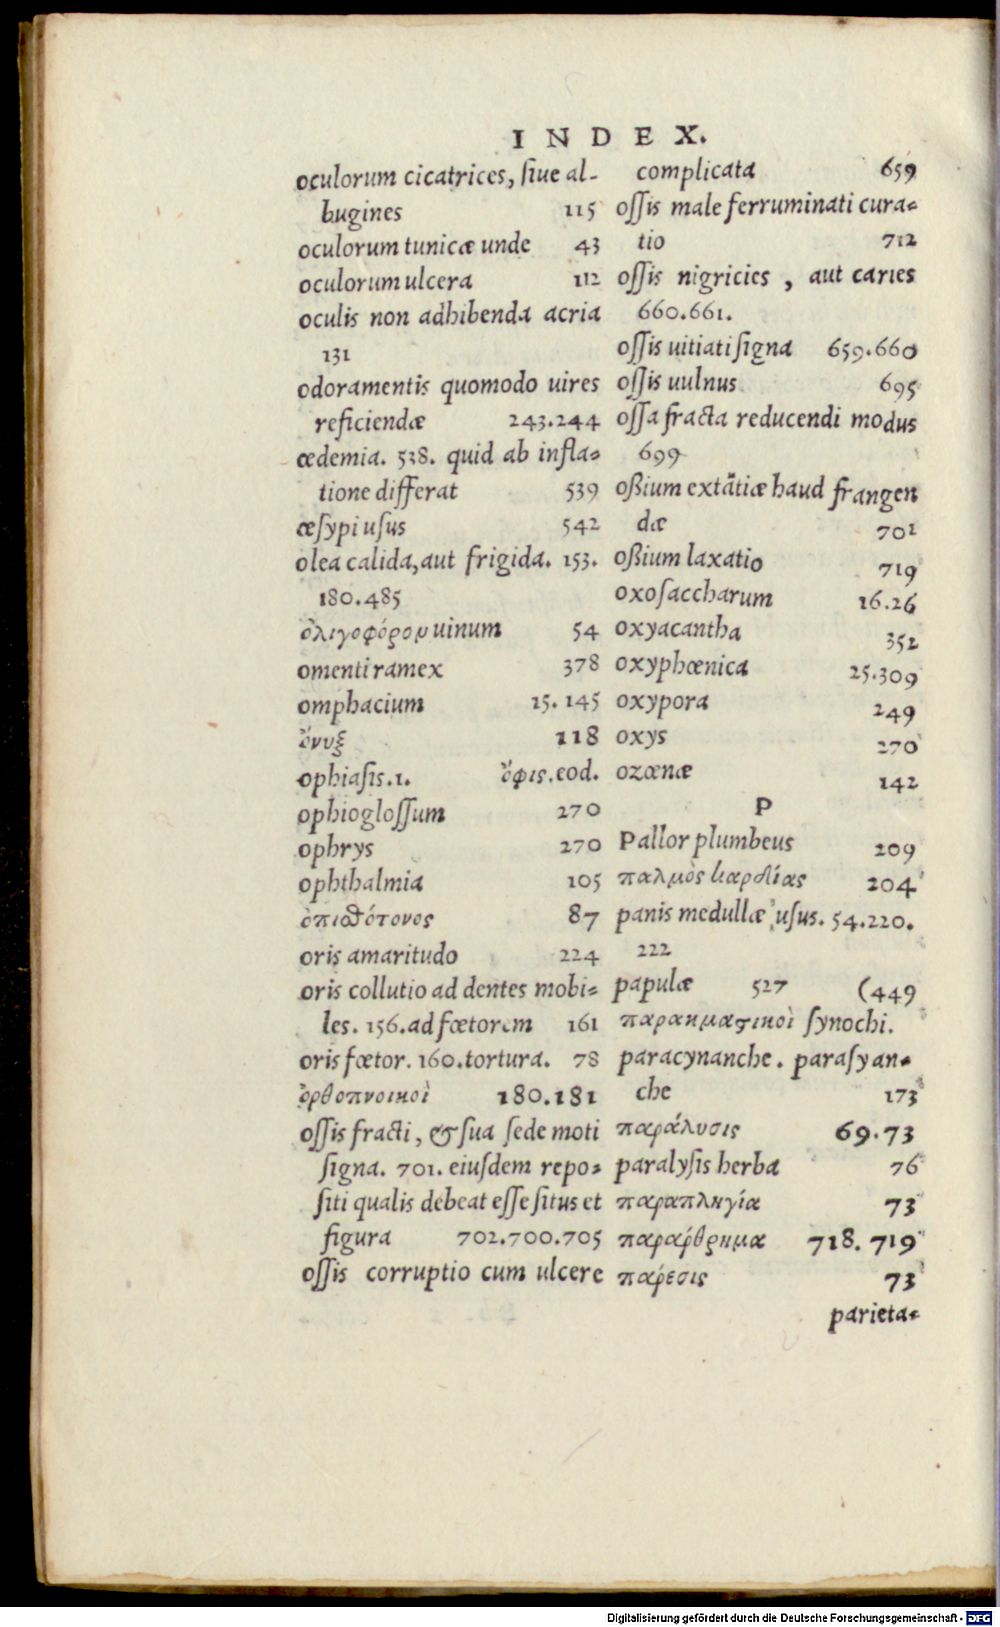 INDEX.
oculorum cicatrices, siue al-
bugines 115
oculorum tunicæ unde 43
oculorum ulcera 112
oculis non adhibenda acria
131
odoramentis quomodo uires
reficiendæ 243.244
œdemia. 538. quid ab infla-
tione differat 539
œsypi usus 542
olea calida, aut frigida. 153.
180.485
ὀλιγοφόρον uinum 54
omenti ramex 378
omphacium 15.145
ὄνυξ 118
ophiasis.1. ὄφις.eod.
ophioglossum 270
ophrys 270
ophthalmia 105
ὀπισθότονος 87
oris amaritudo 224
oris collutio ad dentes mobi-
les. 156. ad fœtorem 161
oris fœtor. 160. tortura. 78
ὀρθοπνοικοὶ 180.181
ossis fracti, & sua sede moti
signa. 701. eiusdem repo-
siti qualis debeat esse situs et
figura 702.700.705
ossis corruptio cum ulcere
complicata 659
ossis male ferruminati cura-
tio 712
ossis nigricies, aut caries
660.661.
ossis uitiati signa 659.660
ossis uulnus 695
ossa fracta reducendi modus
699
oßium extātiæ haud frangen
dæ 702
oßium laxatio 719
oxosaccharum 16.26
oxyacantha 352
oxyphœnica 25.309
oxypora 249
oxys 270
ozœnæ 142
P
Pallor plumbeus 209
παλμὸς καρδίας 204
panis medullæ usus. 54.220.
222
papulæ 527 (449
παρακμαστικοὶ synochi.
paracynanche. parasyan-
che 173
παράλυσις 69.73
paralysis herba 76
παραπληγία 73
παράρθρημα 718.719
πάρεσις 73
parieta-
Digitalisierung gefördert durch die Deutsche Forschungsgemeinschaft - DFG